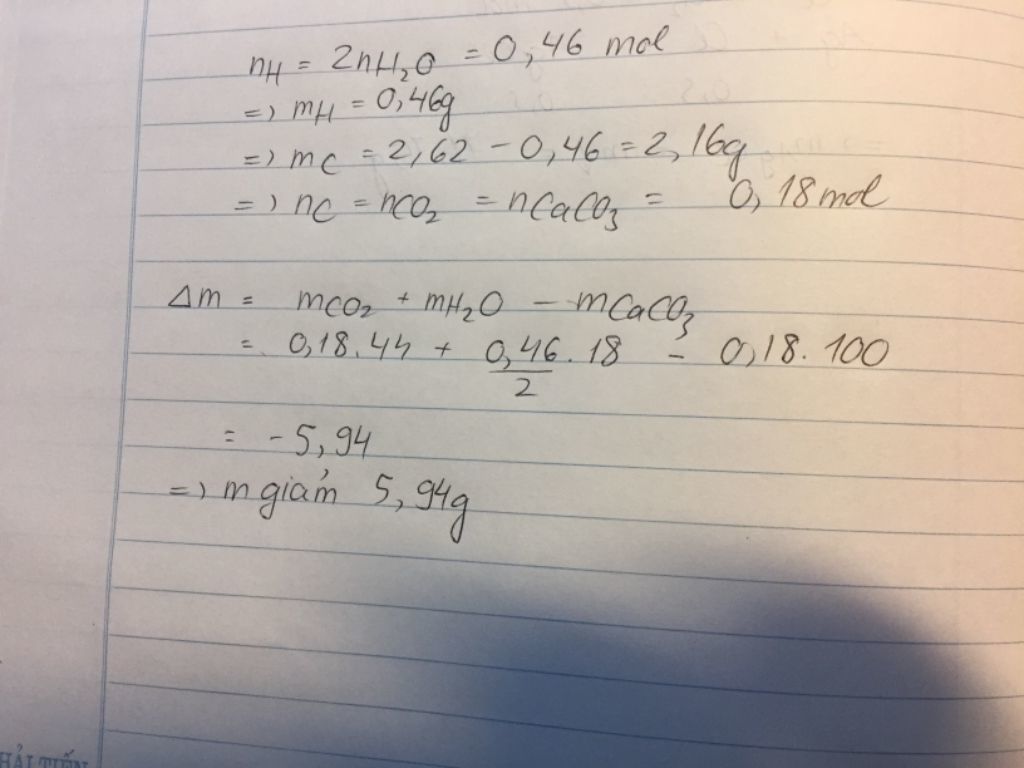 nH = 2nH₂O = 0,46 mol
=> mH = 0,46g
=> mC = 2,62 - 0,46 = 2,16g
=> nC = nCO₂ = nCaCO₃ = 0,18 mol
Δm = mCO₂ + mH₂O - mCaCO₃
= 0,18.44 + 0,46/2 .18 - 0,18.100
= -5,94
=> m giảm 5,94g
HẢI TIẾN